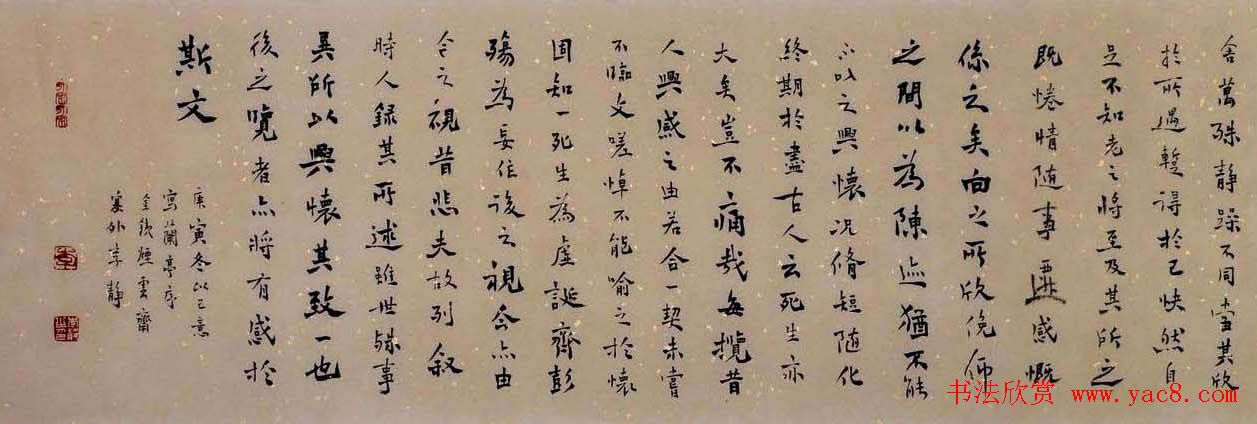 舍萬殊静躁不同當其欣
於所遇暫得於己快然自
足不知老之將至及其所之
既惓情随事遷感慨
係之矣向之所欣俛仰
之間以為陳迹猶不能
不以之興懷况脩短随化
終期於盡古人云死生亦
大矣豈不痛哉每攬昔
人興感之由若合一契未嘗
不臨文嗟悼不能喻之於懷
固知一死生為虚誕齊彭
殤為妄作後之視今亦由
今之視昔悲夫故列叙
時人録其所述雖世殊事
異所以興懷其致一也
後之覽者亦將有感於
斯文
庚寅冬以己意
寫蘭亭序
煙雲齋
塞外李静
书法欣赏 www.yac8.com